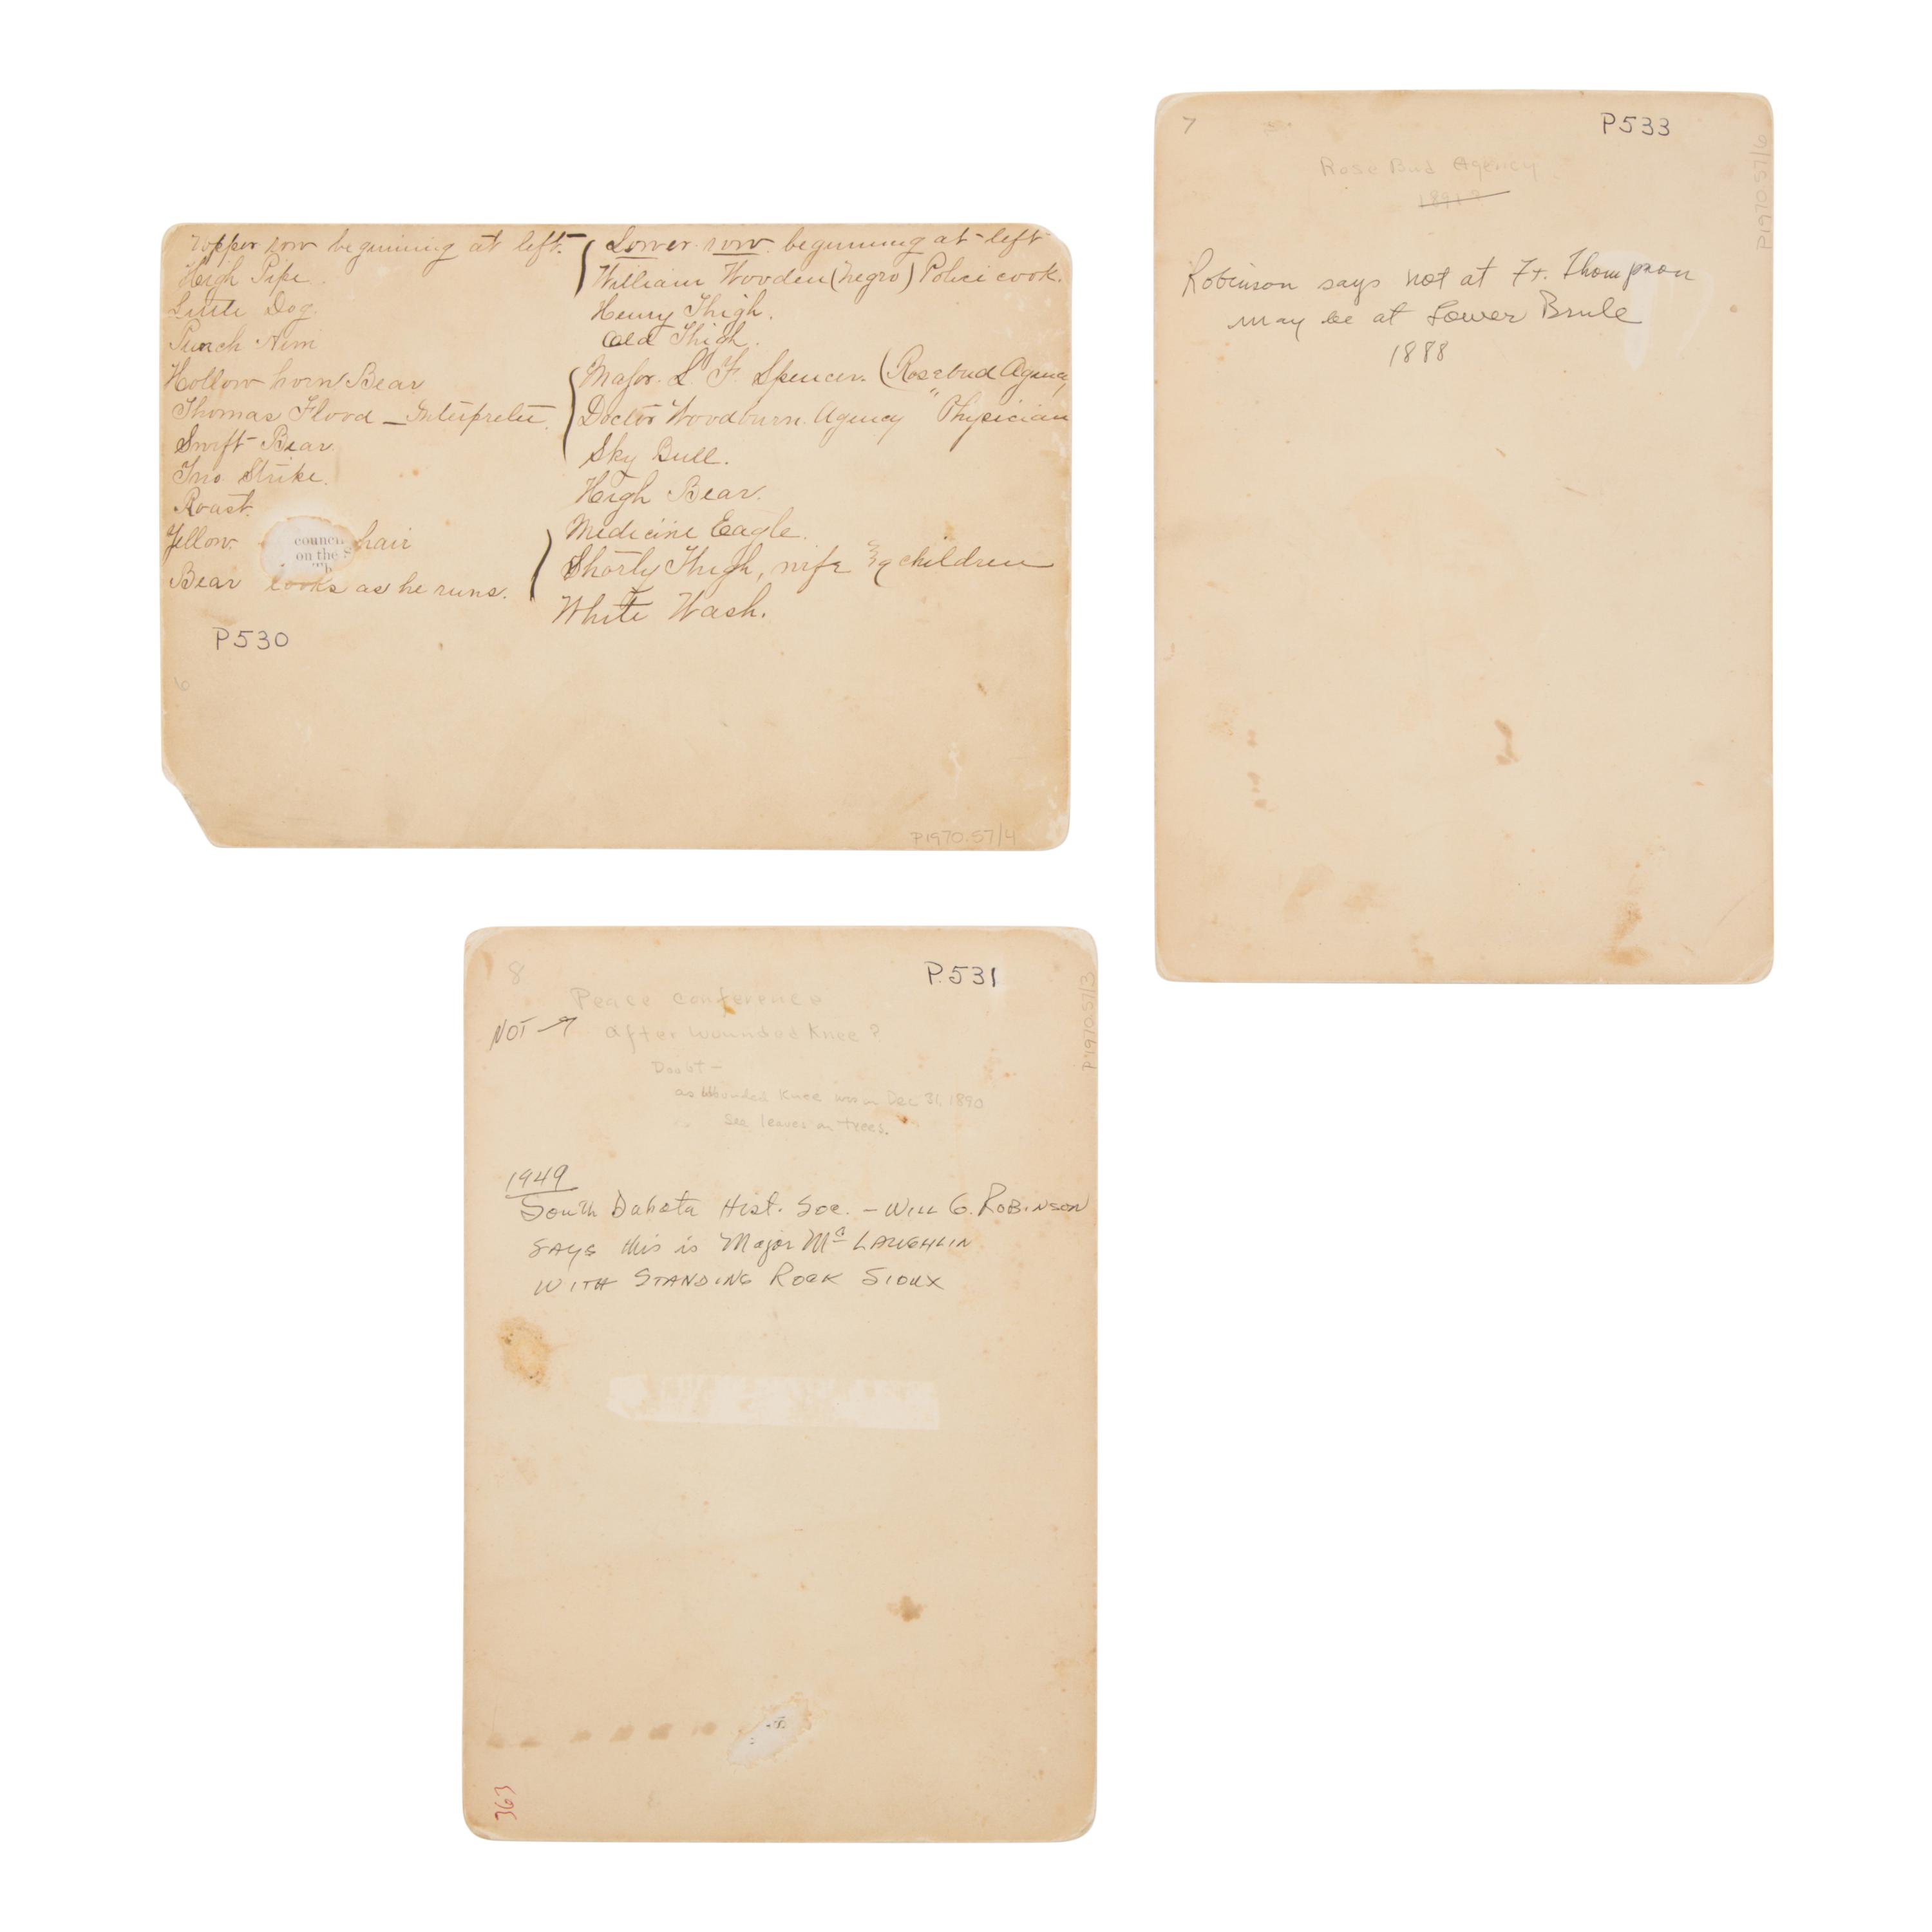 Upper row beginning at left.
High Pipe.
Little Dog.
Hollow horn Bear
Thomas Flood - Interpreter.
Swift Bear.
Two Strike.
Roast.
Yellow hair
council
on the S
Bear looks as he runs.
P530
6
Lower row beginning at left
William Wooden (negro) Police cook.
Henry Thigh.
Old Thigh.
Major. L. F. Spencer. (Rosebud Agency
Doctor Woodburn. Agency " Physician
Sky Bull.
High Bear.
Medicine Eagle.
Shorty Thigh, wife & children
White Wash.
P1970.57/4
7
P533
P1970.57/6
Rose Bud Agency
1891?
Robinson says not at Ft. Thompson
may be at Lower Brule
1888
8
P.531
P1970.57/3
Peace conference
NOT → after Wounded Knee?
Doubt -
as Wounded Knee was on Dec 31, 1890
See leaves on trees.
1949
South Dakota Hist. Soc. - WILL G. ROBINSON
SAYS this is Major Mc LAUGHLIN
WITH STANDING ROCK SIOUX
363